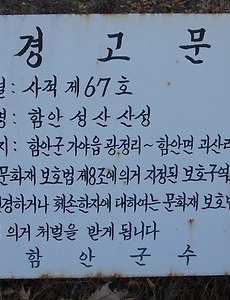 경고문
별 : 사적 제67호
명 : 함안 성산 산성
지 : 함안군 가야읍 광정리~함안면 괴산리
문화재 보호법 제8조에 의거 지정된 보호구역
경하거나 훼손한자에 대하여는 문화재 보호법
의거 처벌을 받게 됩니다
함안군수